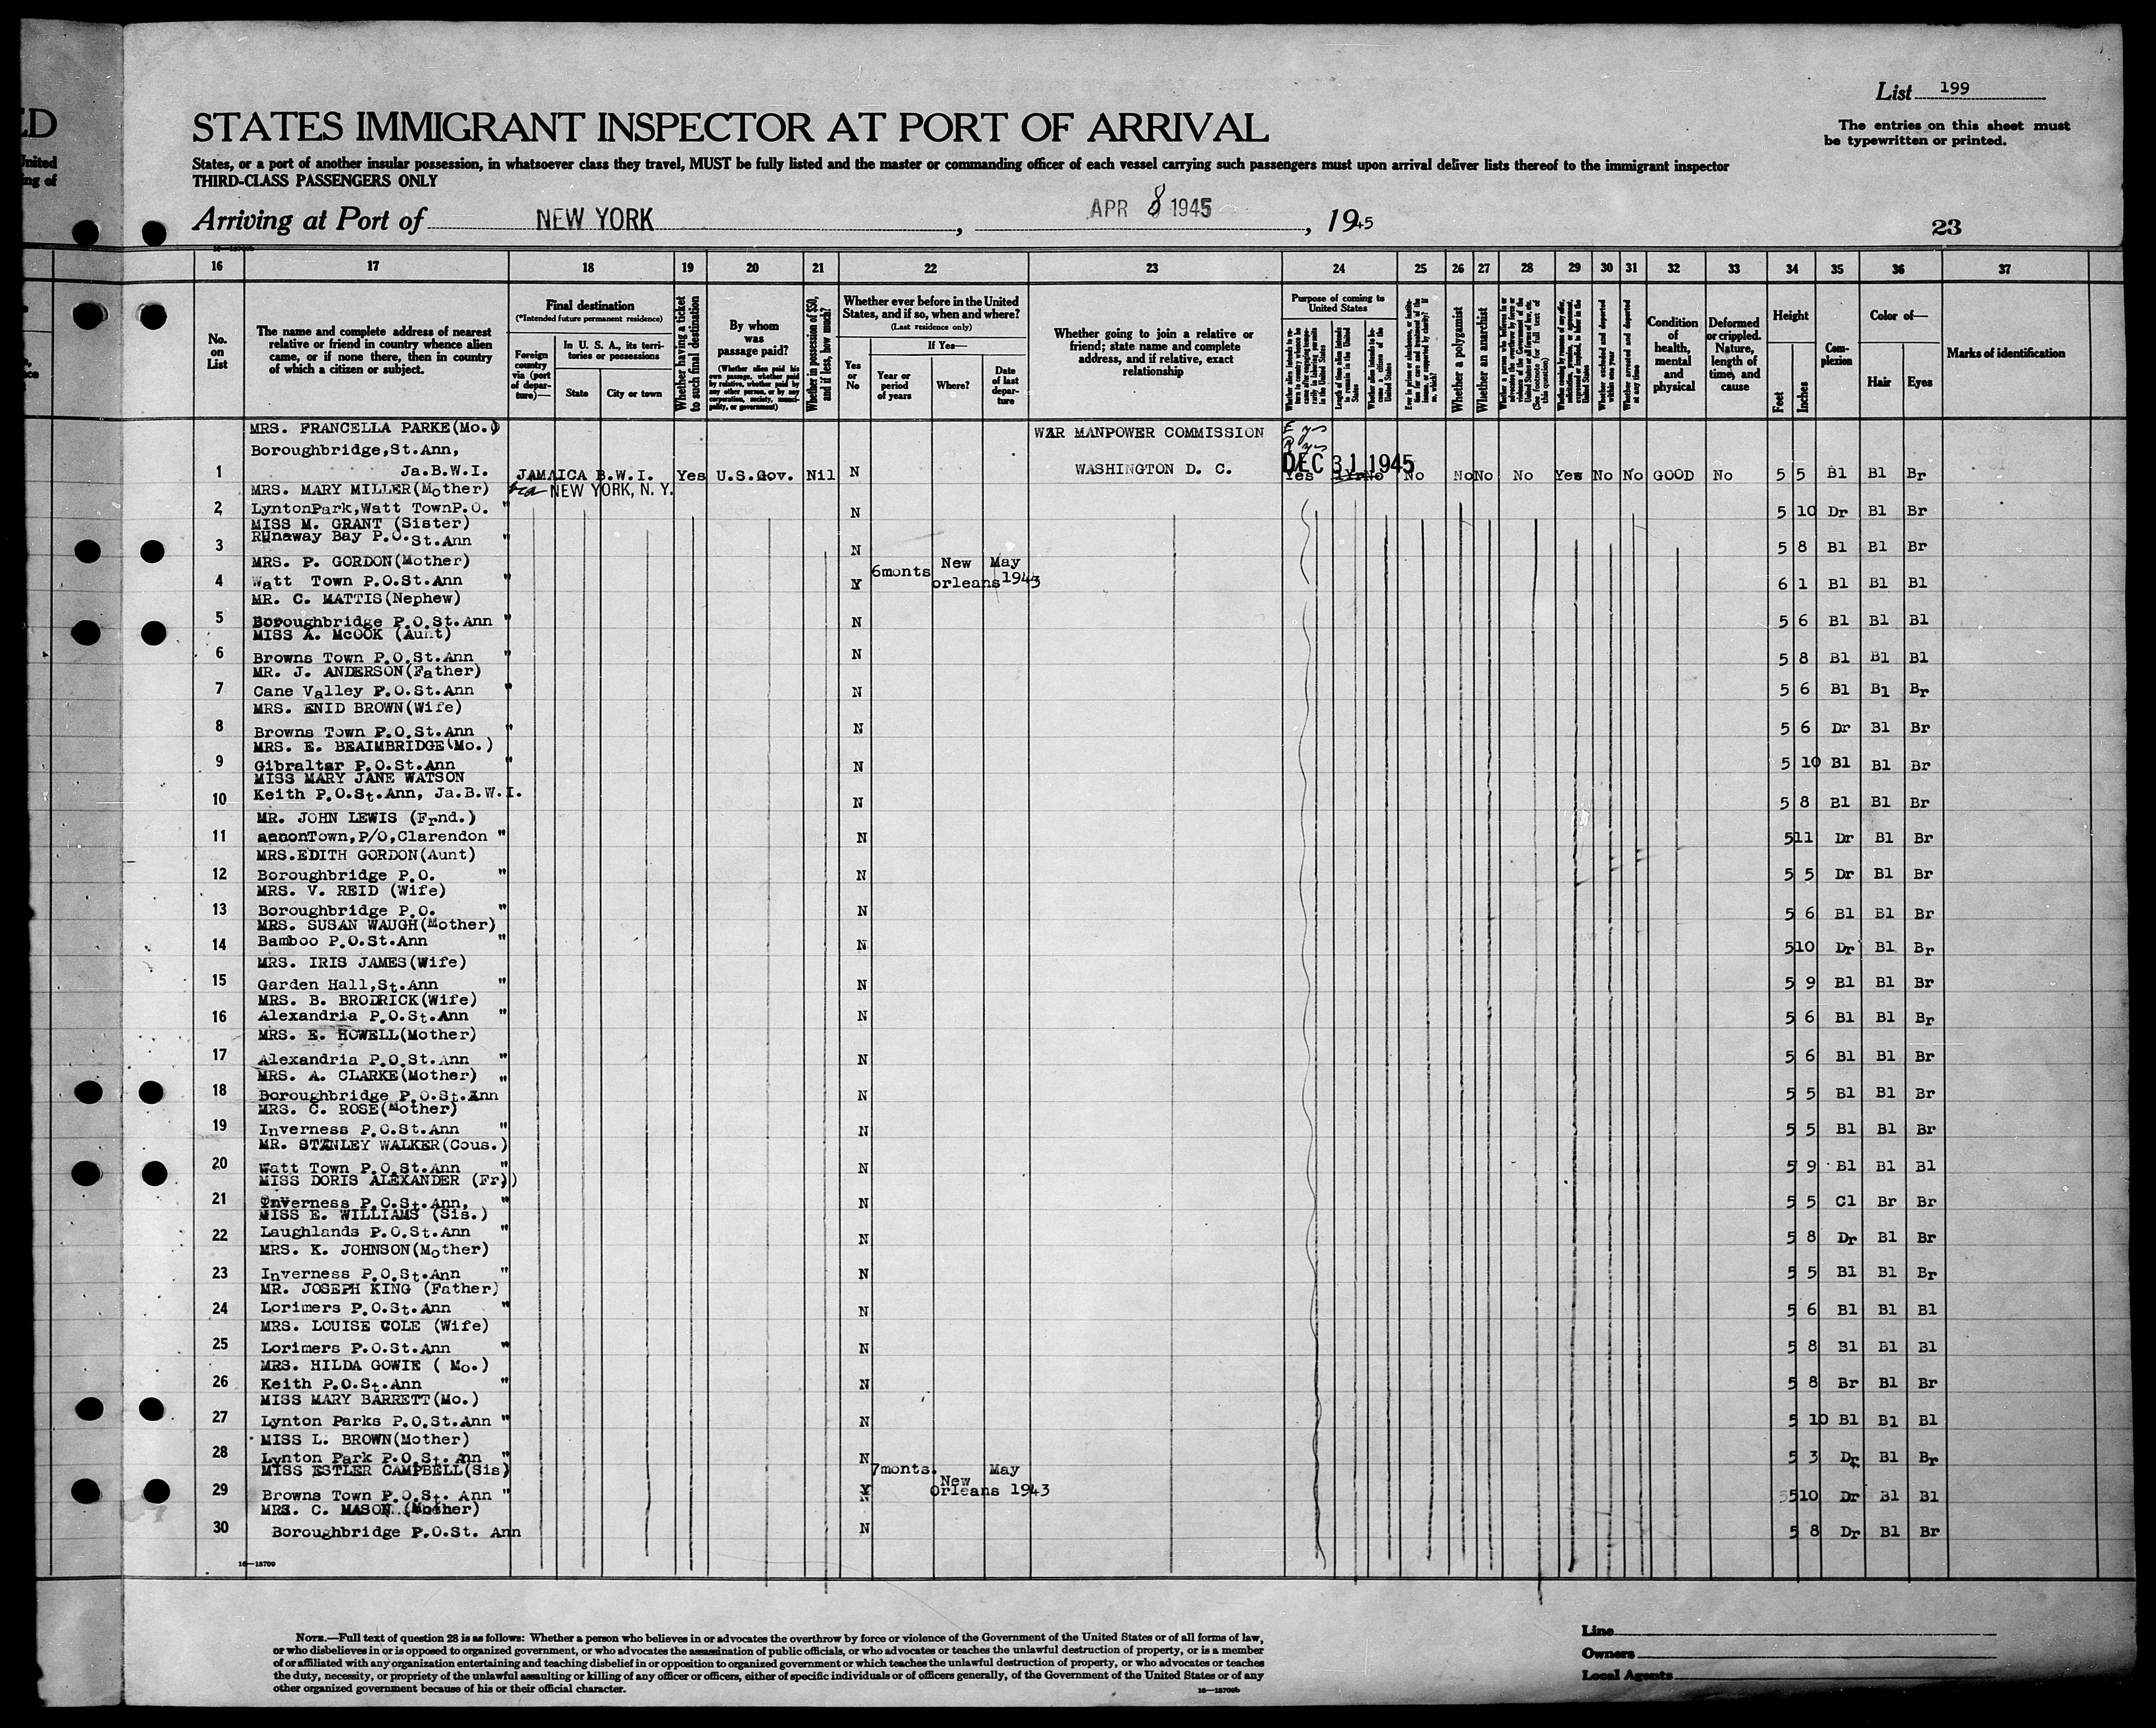 ED
United
ing of
List 199
STATES IMMIGRANT INSPECTOR AT PORT OF ARRIVAL
The entries on this sheet must
be typewritten or printed.
States, or a port of another insular possession, in whatsoever class they travel, MUST be fully listed and the master or commanding officer of each vessel carrying such passengers must upon arrival deliver lists thereof to the immigrant inspector
THIRD-CLASS PASSENGERS ONLY
Arriving at Port of NEW YORK, APR 8 1945, 1945
23
16 17 18 19 20 21 22 23 24 25 26 27 28 29 30 31 32 33 34 35 36 37
No. on List
The name and complete address of nearest relative or friend in country whence alien came, or if none there, then in country of which a citizen or subject.
Final destination
(*Intended future permanent residence)
Foreign country via (port of departure)—
In U. S. A., its territories or possessions
State
City or town
Whether having a ticket to such final destination
By whom was passage paid?
(Whether alien paid his own passage, whether paid by relative, whether paid by any other person, or by any corporation, society, municipality, or government)
Whether in possession of $50, and if less, how much?
Whether ever before in the United States, and if so, when and where?
(Last residence only)
Yes or No
If Yes—
Year or period of years
Where?
Date of last departure
Whether going to join a relative or friend; state name and complete address, and if relative, exact relationship
Purpose of coming to United States
Length of time alien intends to remain in the United States
Whether a polygamist
Whether an anarchist
(See footnote for full text of this question)
Whether excluded and deported within one year
Whether arrested and deported at any time
Condition of health, mental and physical
Deformed or crippled. Nature, length of time, and cause
Height
Feet
Inches
Complexion
Color of—
Hair
Eyes
Marks of identification
MRS. FRANCELLA PARKE(Mo.) WAR MANPOWER COMMISSION E yes
Boroughbridge,St.Ann, R yes
DEC 31 1945
1 Ja.B.W.I. JAMAICA B.W.I. Yes U.S.Gov. Nil N WASHINGTON D. C. Yes 1Yr No No No No No Yes No No GOOD No 5 5 Bl Bl Br
MRS. MARY MILLER(Mother) via NEW YORK, N. Y.
2 LyntonPark,Watt TownP.O. " N 5 10 Dr Bl Br
MISS M. GRANT (Sister)
3 RUnaway Bay P.O.St.Ann " N 5 8 Bl Bl Br
MRS. P. GORDON(Mother)
4 Watt Town P.O.St.Ann " Y 6monts New orleans May 1943 6 1 Bl Bl Bl
MR. C. MATTIS(Nephew)
5 Boroughbridge P.O.St.Ann " N 5 6 Bl Bl Bl
MISS A. McCOOK (Aunt)
6 Browns Town P.O.St.Ann " N 5 8 Bl Bl Bl
MR. J. ANDERSON(Father)
7 Cane Valley P.O.St.Ann " N 5 6 Bl Bl Br
MRS. ENID BROWN(Wife)
8 Browns Town P.O.St.Ann " N 5 6 Dr Bl Br
MRS. E. BEAIMBRIDGE(Mo.)
9 Gibraltar P.O.St.Ann " N 5 10 Bl Bl Br
MISS MARY JANE WATSON
10 Keith P.O.St.Ann, Ja.B.W.I. N 5 8 Bl Bl Br
MR. JOHN LEWIS (Frnd.)
11 aenonTown,P/O,Clarendon " N 5 11 Dr Bl Br
MRS.EDITH GORDON(Aunt)
12 Boroughbridge P.O. " N 5 5 Dr Bl Br
MRS. V. REID (Wife)
13 Boroughbridge P.O. " N 5 6 Bl Bl Br
MRS. SUSAN WAUGH(Mother)
14 Bamboo P.O.St.Ann " N 5 10 Dr Bl Br
MRS. IRIS JAMES(Wife)
15 Garden Hall,St.Ann " N 5 9 Bl Bl Br
MRS. B. BRODRICK(Wife)
16 Alexandria P.O.St.Ann " N 5 6 Bl Bl Br
MRS. E. HOWELL(Mother)
17 Alexandria P.O.St.Ann " N 5 6 Bl Bl Br
MRS. A. CLARKE(Mother) "
18 Boroughbridge P.O.St.Ann N 5 5 Bl Bl Br
MRS. C. ROSE(Mother)
19 Inverness P.O.St.Ann " N 5 5 Bl Bl Br
MR. STANLEY WALKER(Cous.)
20 Watt Town P.O.St.Ann " N 5 9 Bl Bl Bl
MISS DORIS ALEXANDER (Fr.)
21 Inverness P.O.St.Ann, " N 5 5 Cl Br Br
MISS E. WILLIAMS (Sis.)
22 Laughlands P.O.St.Ann " N 5 8 Dr Bl Br
MRS. K. JOHNSON(Mother)
23 Inverness P.O.St.Ann " N 5 5 Bl Bl Br
MR. JOSEPH KING (Father)
24 Lorimers P.O.St.Ann " N 5 6 Bl Bl Bl
MRS. LOUISE COLE (Wife)
25 Lorimers P.O.St.Ann " N 5 8 Bl Bl Bl
MRS. HILDA GOWIE ( Mo.)
26 Keith P.O.St.Ann " N 5 8 Br Bl Br
MISS MARY BARRETT(Mo.)
27 Lynton Parks P.O.St.Ann " N 5 10 Bl Bl Bl
MISS L. BROWN(Mother)
28 Lynton Park P.O.St. Ann " N 5 3 Dr Bl Br
MISS ESTLER CAMPBELL(Sis)
29 Browns Town P.O.St. Ann " Y 7monts. New Orleans May 1943 5 10 Dr Bl Bl
MRS. C. MASON (Mother)
30 Boroughbridge P.O.St. Ann N 5 8 Dr Bl Br
16—18709
NOTE.—Full text of question 28 is as follows: Whether a person who believes in or advocates the overthrow by force or violence of the Government of the United States or of all forms of law,
or who disbelieves in or is opposed to organized government, or who advocates the assassination of public officials, or who advocates or teaches the unlawful destruction of property, or is a member
of or affiliated with any organization entertaining and teaching disbelief in or opposition to organized government or which teaches the unlawful destruction of property, or who advocates or teaches
the duty, necessity, or propriety of the unlawful assaulting or killing of any officer or officers, either of specific individuals or of officers generally, of the Government of the United States or of any
other organized government because of his or their official character.
16—18709b
Line
Owners
Local Agents